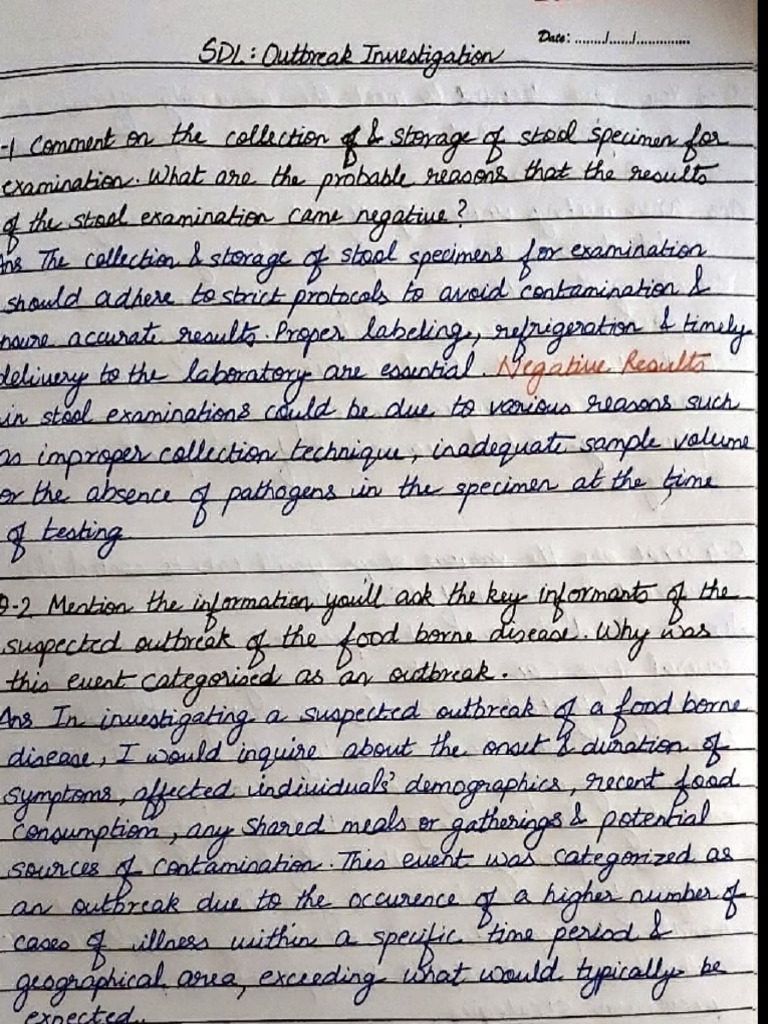 Date: ......../....../..............
SDL: Outbreak Investigation
-1 Comment on the collection of & storage of stool specimen for
examination. What are the probable reasons that the results
of the stool examination came negative?
Ans The collection & storage of stool specimens for examination
should adhere to strict protocols to avoid contamination &
nsure accurate results. Proper labeling, refrigeration & timely
delivery to the laboratory are essential. Negative Results
in stool examinations could be due to various reasons such
as improper collection technique, inadequate sample volume
or the absence of pathogens in the specimen at the time
of testing
Q-2 Mention the information you'll ask the key informants of the
suspected outbreak of the food borne disease. Why was
this event categorised as an outbreak.
Ans In investigating a suspected outbreak of a food borne
disease, I would inquire about the onset & duration of
symptoms, affected individuals' demographics, recent food
consumption, any shared meals or gatherings & potential
sources of contamination. This event was categorized as
an outbreak due to the occurence of a higher number of
cases of illness within a specific time period &
geographical area, exceeding what would typically be
expected.